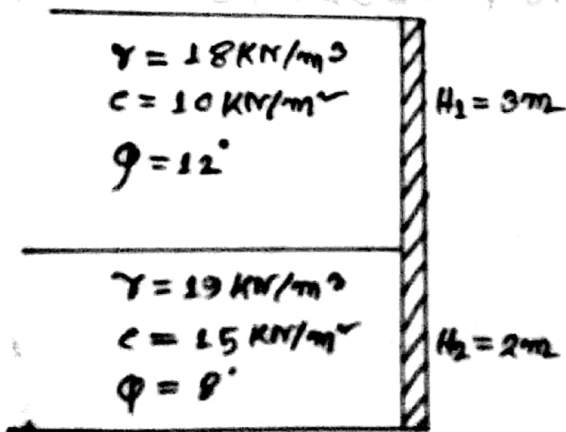 γ = 18 KN/m³
c = 10 KN/m²
φ = 12°
H₁ = 3m
γ = 19 KN/m³
c = 15 KN/m²
φ = 8°
H₂ = 2m